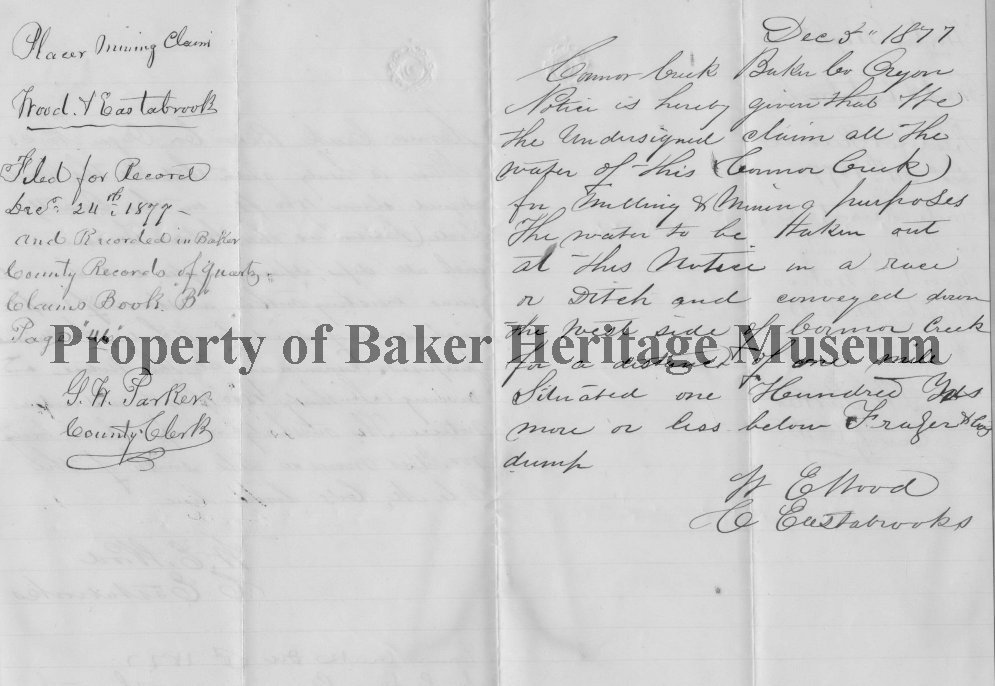 Placer Mining Claim
Wood. & Eastabrook
Filed for Record
Dec. 24th 1877 -
and Recorded in Baker
County Records of Quartz
Claims Book "B"
Page "46"
G. H. Parker
County Clerk
Dec 5" 1877
Connor Creek Baker Co Oregon
Notice is hereby given that We
the Undersigned claim all the
water of this (Connor Creek)
for Milling & Mining purposes
The water to be taken out
at this Notice in a race
or Ditch and conveyed down
the West side of Connor Creek
for a distance of one mile
Situated one Hundred Yds
more or less below Frazer &
dump
W E Wood
C Eastabrooks
Property of Baker Heritage Museum